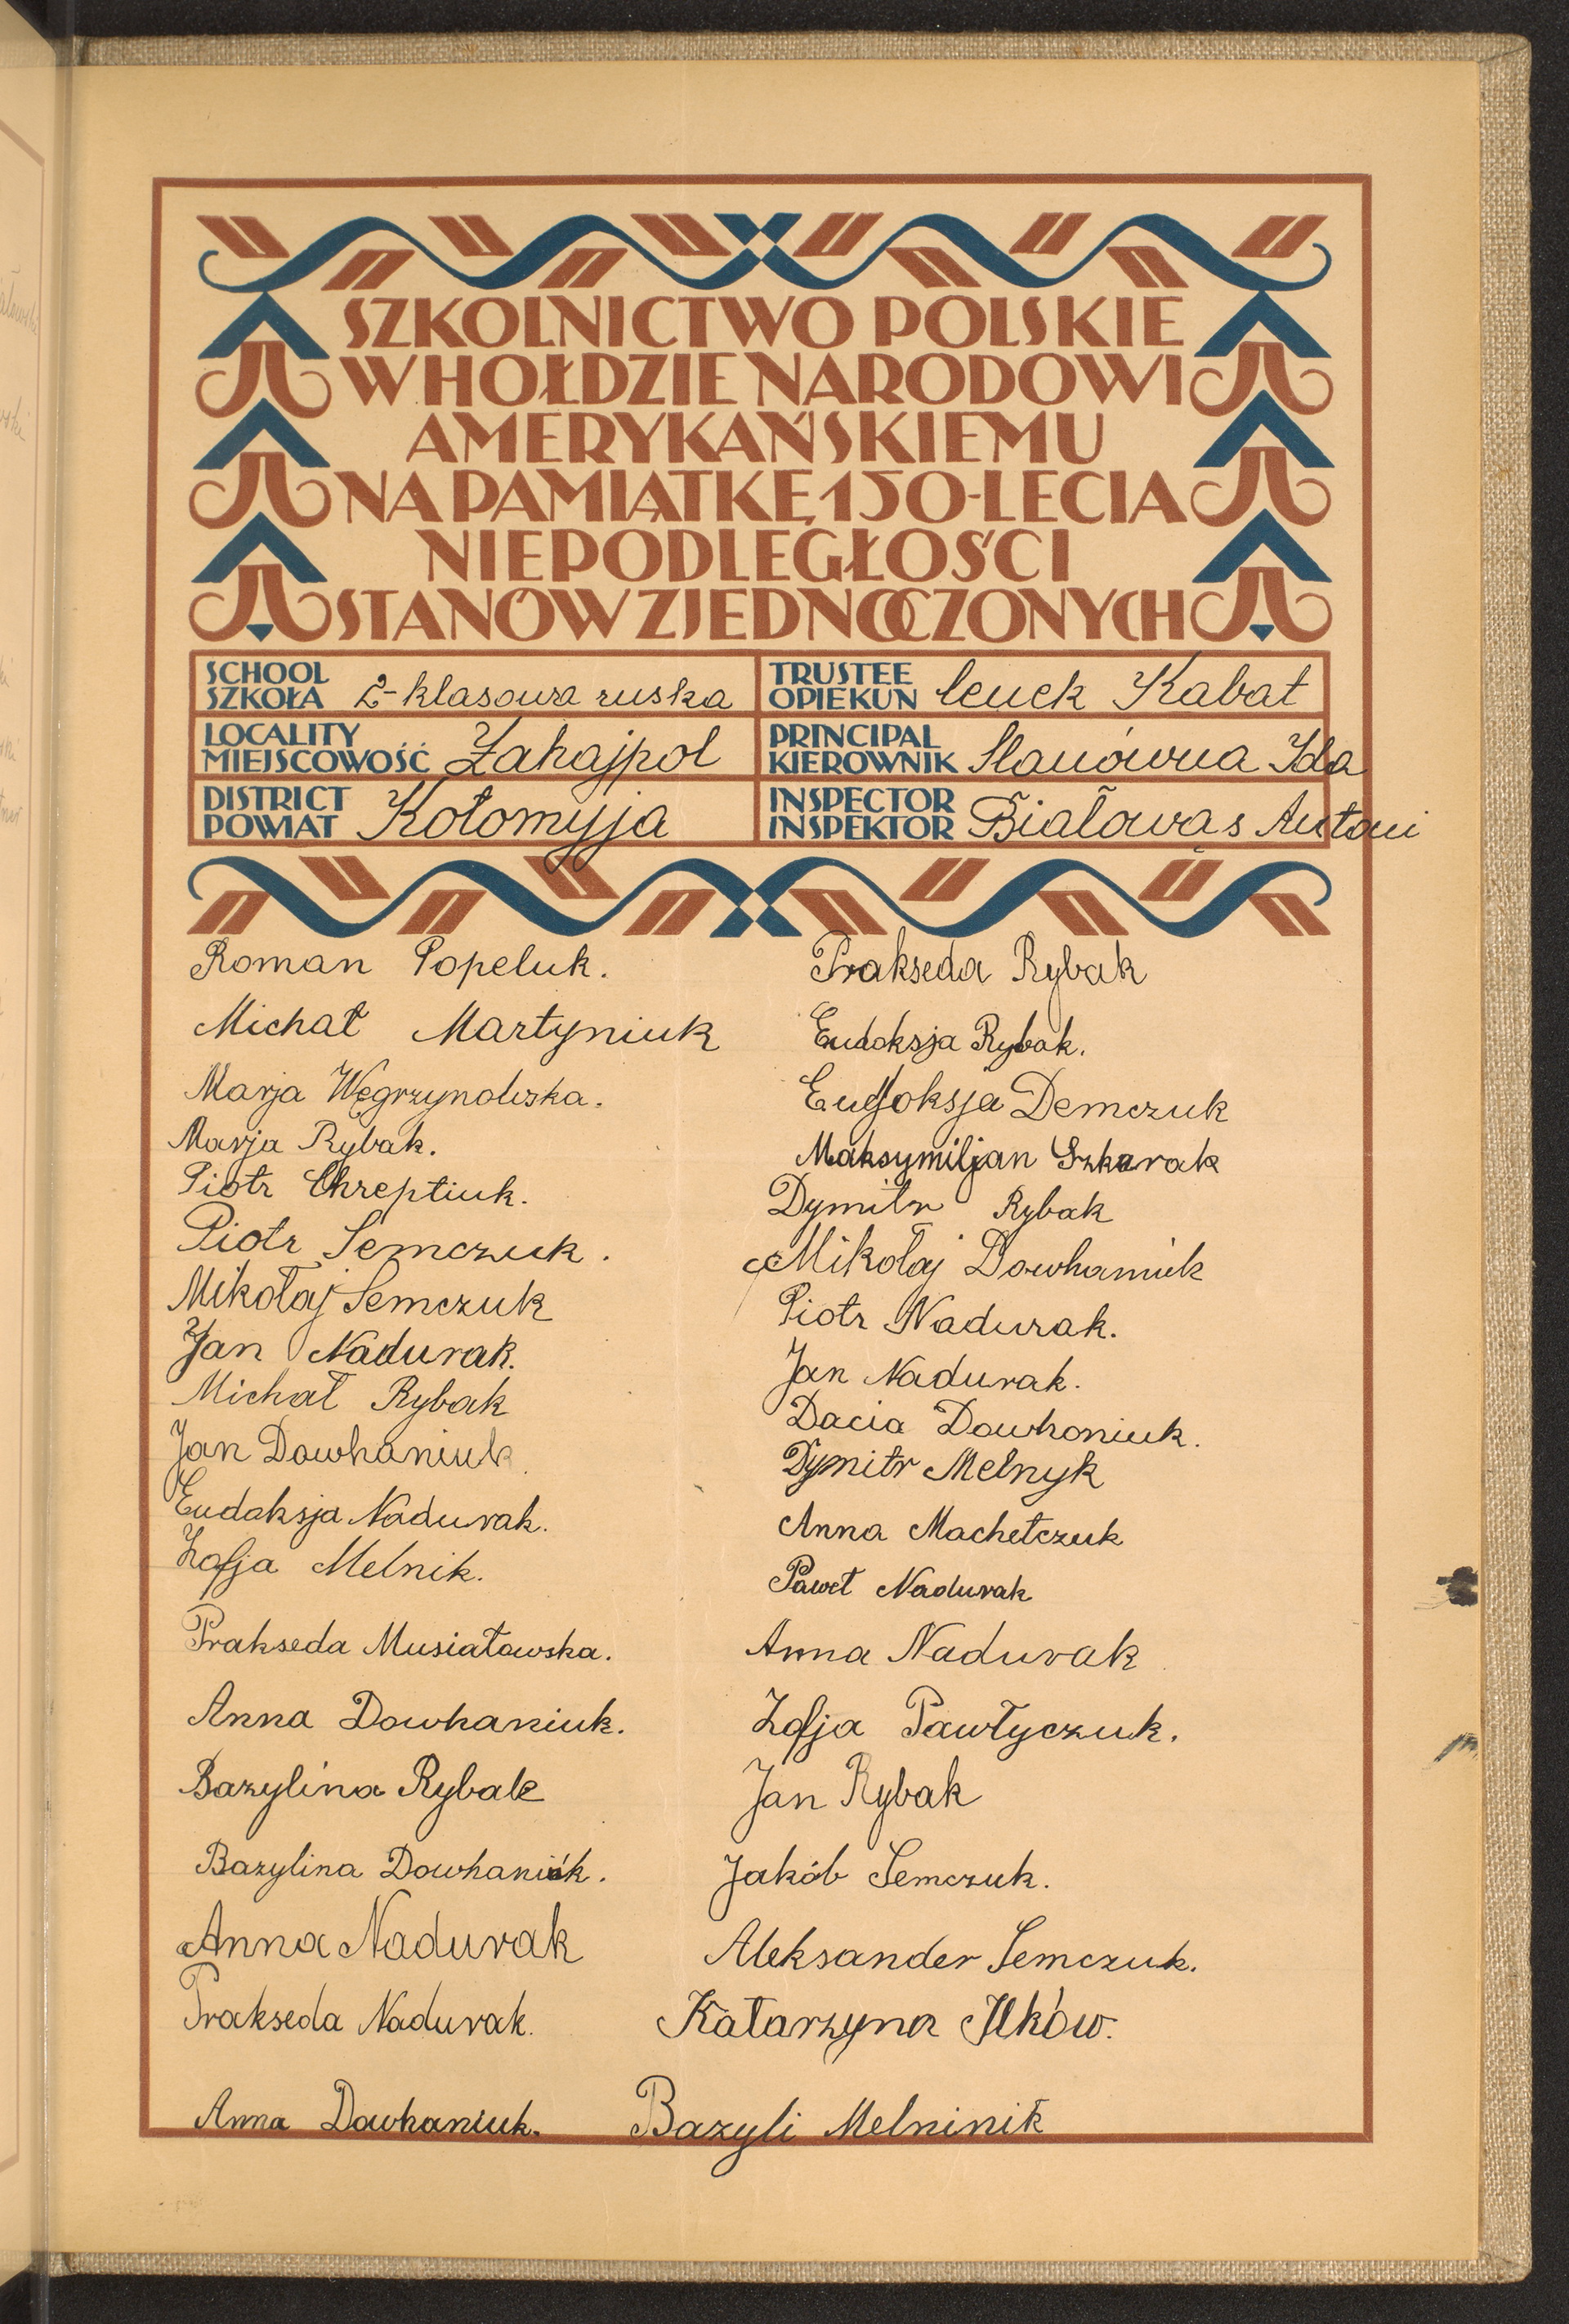 SZKOLNICTWO POLSKIE
W HOŁDZIE NARODOWI
AMERYKAŃSKIEMU
NA PAMIĄTKĘ 150-LECIA
NIEPODLEGŁOŚCI
STANÓW ZJEDNOCZONYCH
SCHOOL
SZKOŁA 2-klasowa ruska
TRUSTEE
OPIEKUN Ilcuck Kabat
LOCALITY
MIEJSCOWOŚĆ Zahajpol
PRINCIPAL
KIEROWNIK Slanówna Ida
DISTRICT
POWIAT Kołomyja
INSPECTOR
INSPEKTOR Białowąs Antoni
Roman Popeluk.
Michał Martyniuk
Marja Węgrzynowska.
Marja Rybak.
Piotr Chreptiuk.
Piotr Semczuk.
Mikołaj Semczuk
Jan Nadurak.
Michał Rybak
Jan Dowhaniuk
Eudoksja Nadurak.
Zofja Melnik.
Prakseda Musiatowska.
Anna Dowhaniuk.
Bazylina Rybak
Bazylina Dowhaniuk.
Anna Nadurak
Prakseda Nadurak.
Anna Dowhaniuk.
Prakseda Rybak
Eudoksja Rybak.
Eudoksja Demczuk
Maksymiljan Szkarak
Dymitr Rybak
Mikołaj Dowhaniuk
Piotr Nadurak.
Jan Nadurak.
Dacia Dowhoniuk.
Dymitr Melnyk
Anna Machetczuk
Paweł Nadurak
Anna Nadurak
Zofja Pawłyczuk.
Jan Rybak
Jakób Semczuk.
Aleksander Semczuk.
Katarzyna Ilków.
Bazyli Melninik